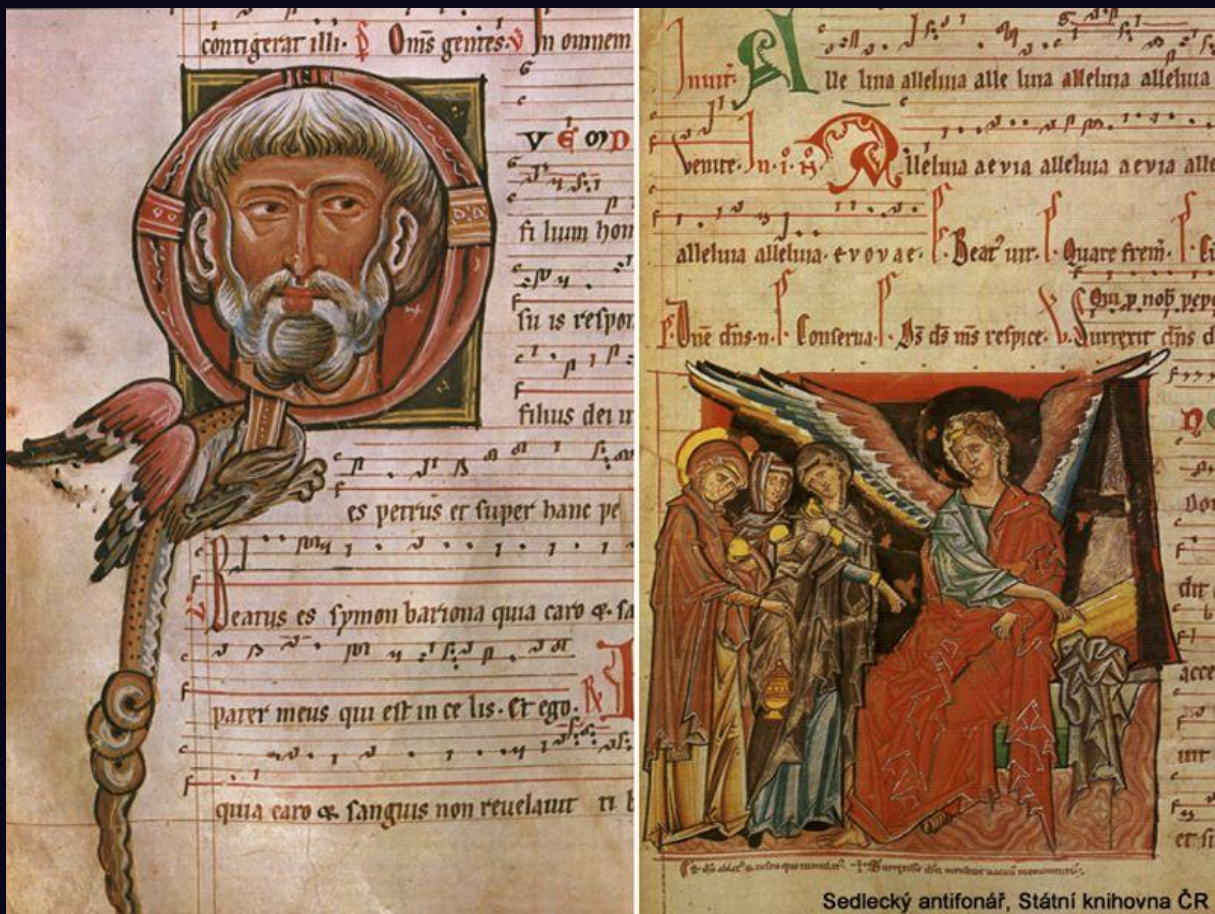 contigerat illi. Oms gentes. In omnem
VEM D
fi lium hom
su is respon
filius dei u
es petrus et super hanc pe
Beatus es symon bariona quia caro & sa
pater meus qui est in ce lis. Et ego.
quia caro & sanguis non revelavit ti b
Invit. Alle luia alleluia alle luia alleluia alleluia
venite. In. i. N. Alleluia aevia alleluia aevia alle
alleluia alleluia. evovae. Beat vir. Quare frem.
Qui p nob pepe
Dne dns n. Conserva. Ds ds ms respice. V. Surrexit dns d
dit
acce
et si
Sedlecký antifonář, Státní knihovna ČR